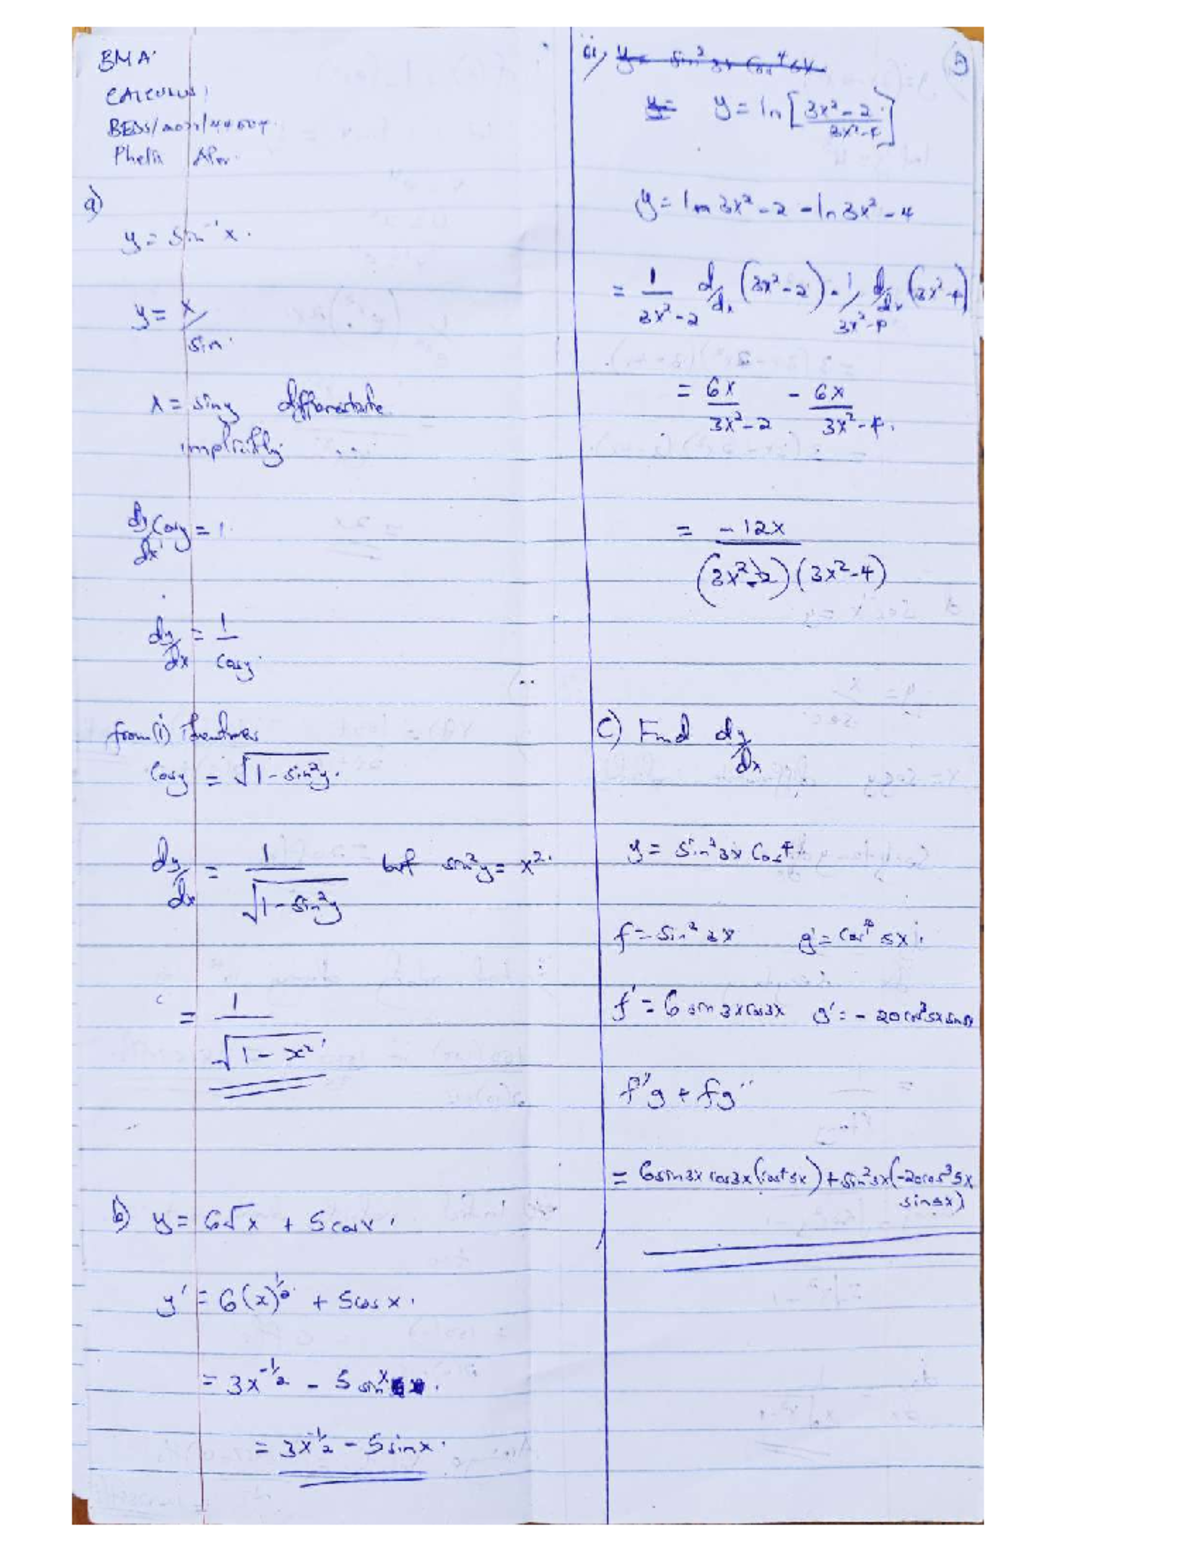 BMA
CALCULUS
a)
y = Sin⁻¹x.
y = x/sin.
x = siny differentiate
implicitly
dy/dx Cosy = 1.
dy/dx = 1/Cosy.
from (i)
Cosy = √(1-sin²y).
dy/dx = 1/√(1-sin²y) but sin²y = x².
= 1/√(1-x²)
b) y = 6√x + 5cosx.
y' = 6(x)^½ + 5cosx.
= 3x^-½ - 5 sinx
= 3x^-½ - 5sinx.
y = ln[(3x²-2)/(3x²-4)]
y = ln 3x²-2 - ln 3x²-4
= 1/(3x²-2) d/dx (3x²-2) - 1/(3x²-4) d/dx (3x²-4)
= 6x/(3x²-2) - 6x/(3x²-4).
= -12x/((3x²-2)(3x²-4))
C) Find dy/dx
y = Sin²3x Cos⁴
f = Sin²3x g = Cos⁴5x.
f' = 6sin3xcos3x g' = -20cos³5xsin5x
f'g + fg'
= 6sin3xcos3x(cos⁴5x) + sin²3x(-20cos³5x
sin5x)